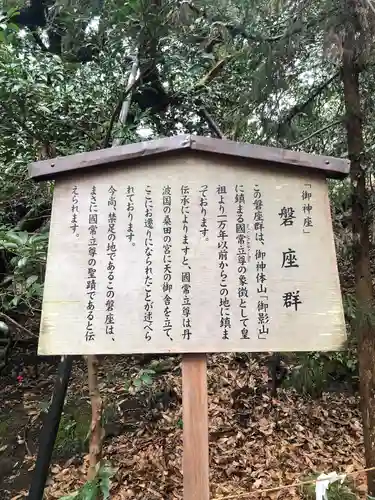 「御神座」
磐座群
この磐座群は、御神体山「御影山」
に鎮まる國常立尊の象徴として皇
祖より二万年以前からこの地に鎮ま
っております。
伝承によりますと、國常立尊は丹
波国の桑田の宮に天の御舎を立て、
ここにお遷りになられたことが述べら
れております。
今尚、禁足の地であるこの磐座は、
まさに國常立尊の聖蹟であると伝
えられます。